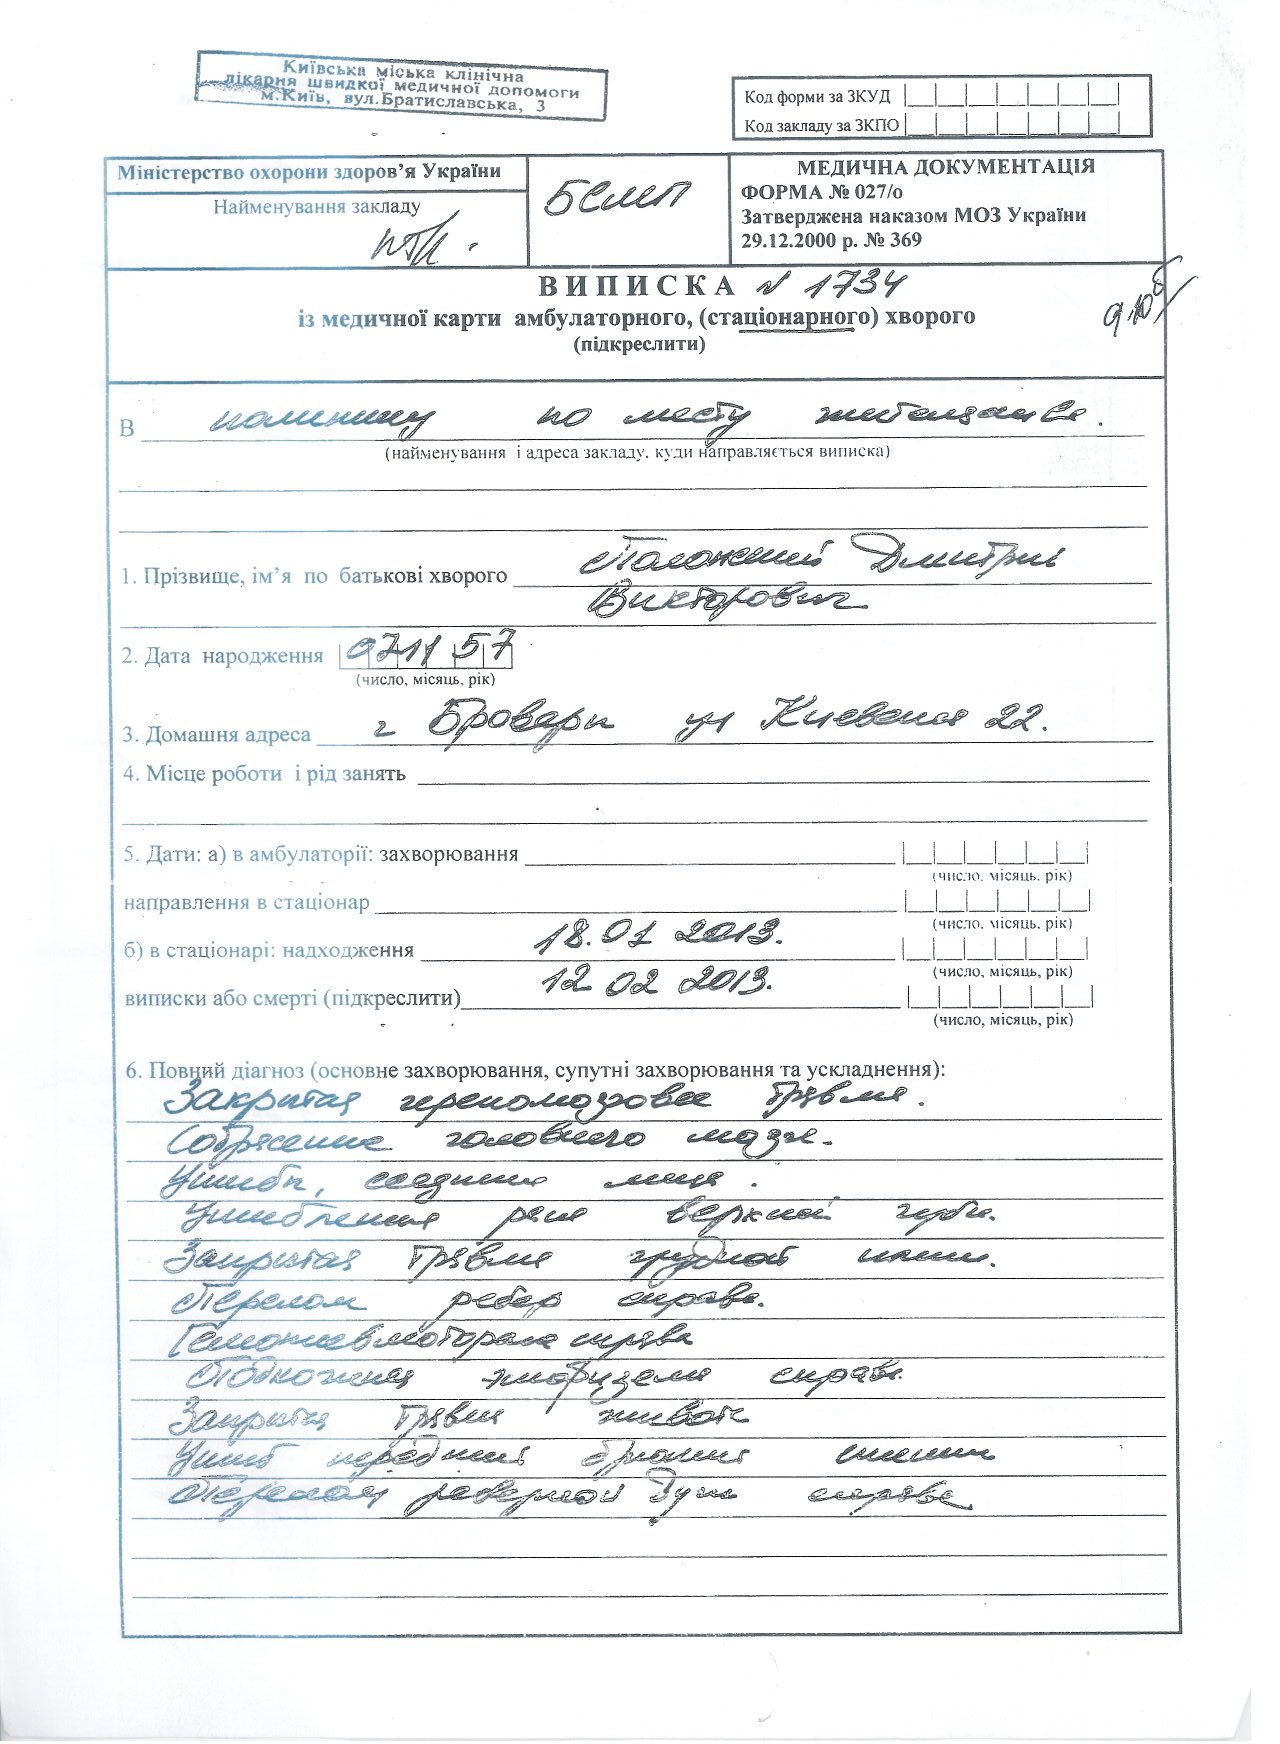 Київська міська клінічна
лікарня швидкої медичної допомоги
м.Київ, вул.Братиславська, 3
Код форми за ЗКУД
Код закладу за ЗКПО
Міністерство охорони здоров’я України
Найменування закладу
БСМП
МЕДИЧНА ДОКУМЕНТАЦІЯ
ФОРМА № 027/о
Затверджена наказом МОЗ України
29.12.2000 р. № 369
ВИПИСКА № 1734
із медичної карти амбулаторного, (стаціонарного) хворого
(підкреслити)
В по месту жительства.
(найменування і адреса закладу, куди направляється виписка)
1. Прізвище, ім’я по батькові хворого Дмитрий
Викторович
2. Дата народження 071157
(число, місяць, рік)
3. Домашня адреса г Бровары ул Киевская 22.
4. Місце роботи і рід занять
5. Дати: а) в амбулаторії: захворювання
(число, місяць, рік)
направлення в стаціонар
(число, місяць, рік)
б) в стаціонарі: надходження 18.01 2013.
(число, місяць, рік)
виписки або смерті (підкреслити) 12 02 2013.
(число, місяць, рік)
6. Повний діагноз (основне захворювання, супутні захворювання та ускладнення):
Закрытая черепномозговая травма.
Сотрясение головного мозга.
Ушибы, ссадины лица.
Ушибленная рана верхней губы.
Закрытая травма грудной клетки.
Перелом ребер справа.
Гемопневмоторакс справа
Подкожная эмфизема справа.
Закрытая травма живота
Ушиб передней брюшной стенки
Перелом реберной дуги справа